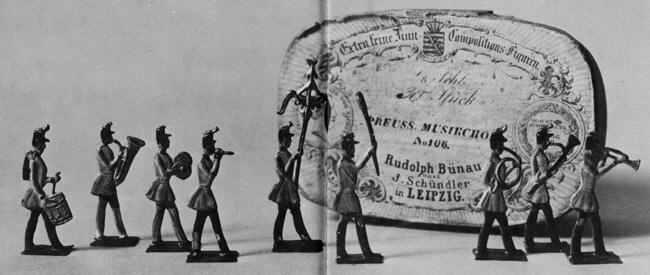 Extra feine Zinn Compositions-Figuren.
30 Stück
PREUSS. MUSIKCHO
No 106.
Rudolph Bünau
J. Schündler
in LEIPZIG.